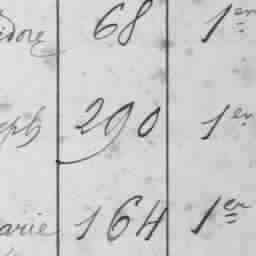 idore 68 1er
eph 290 1er
arie 164 1er